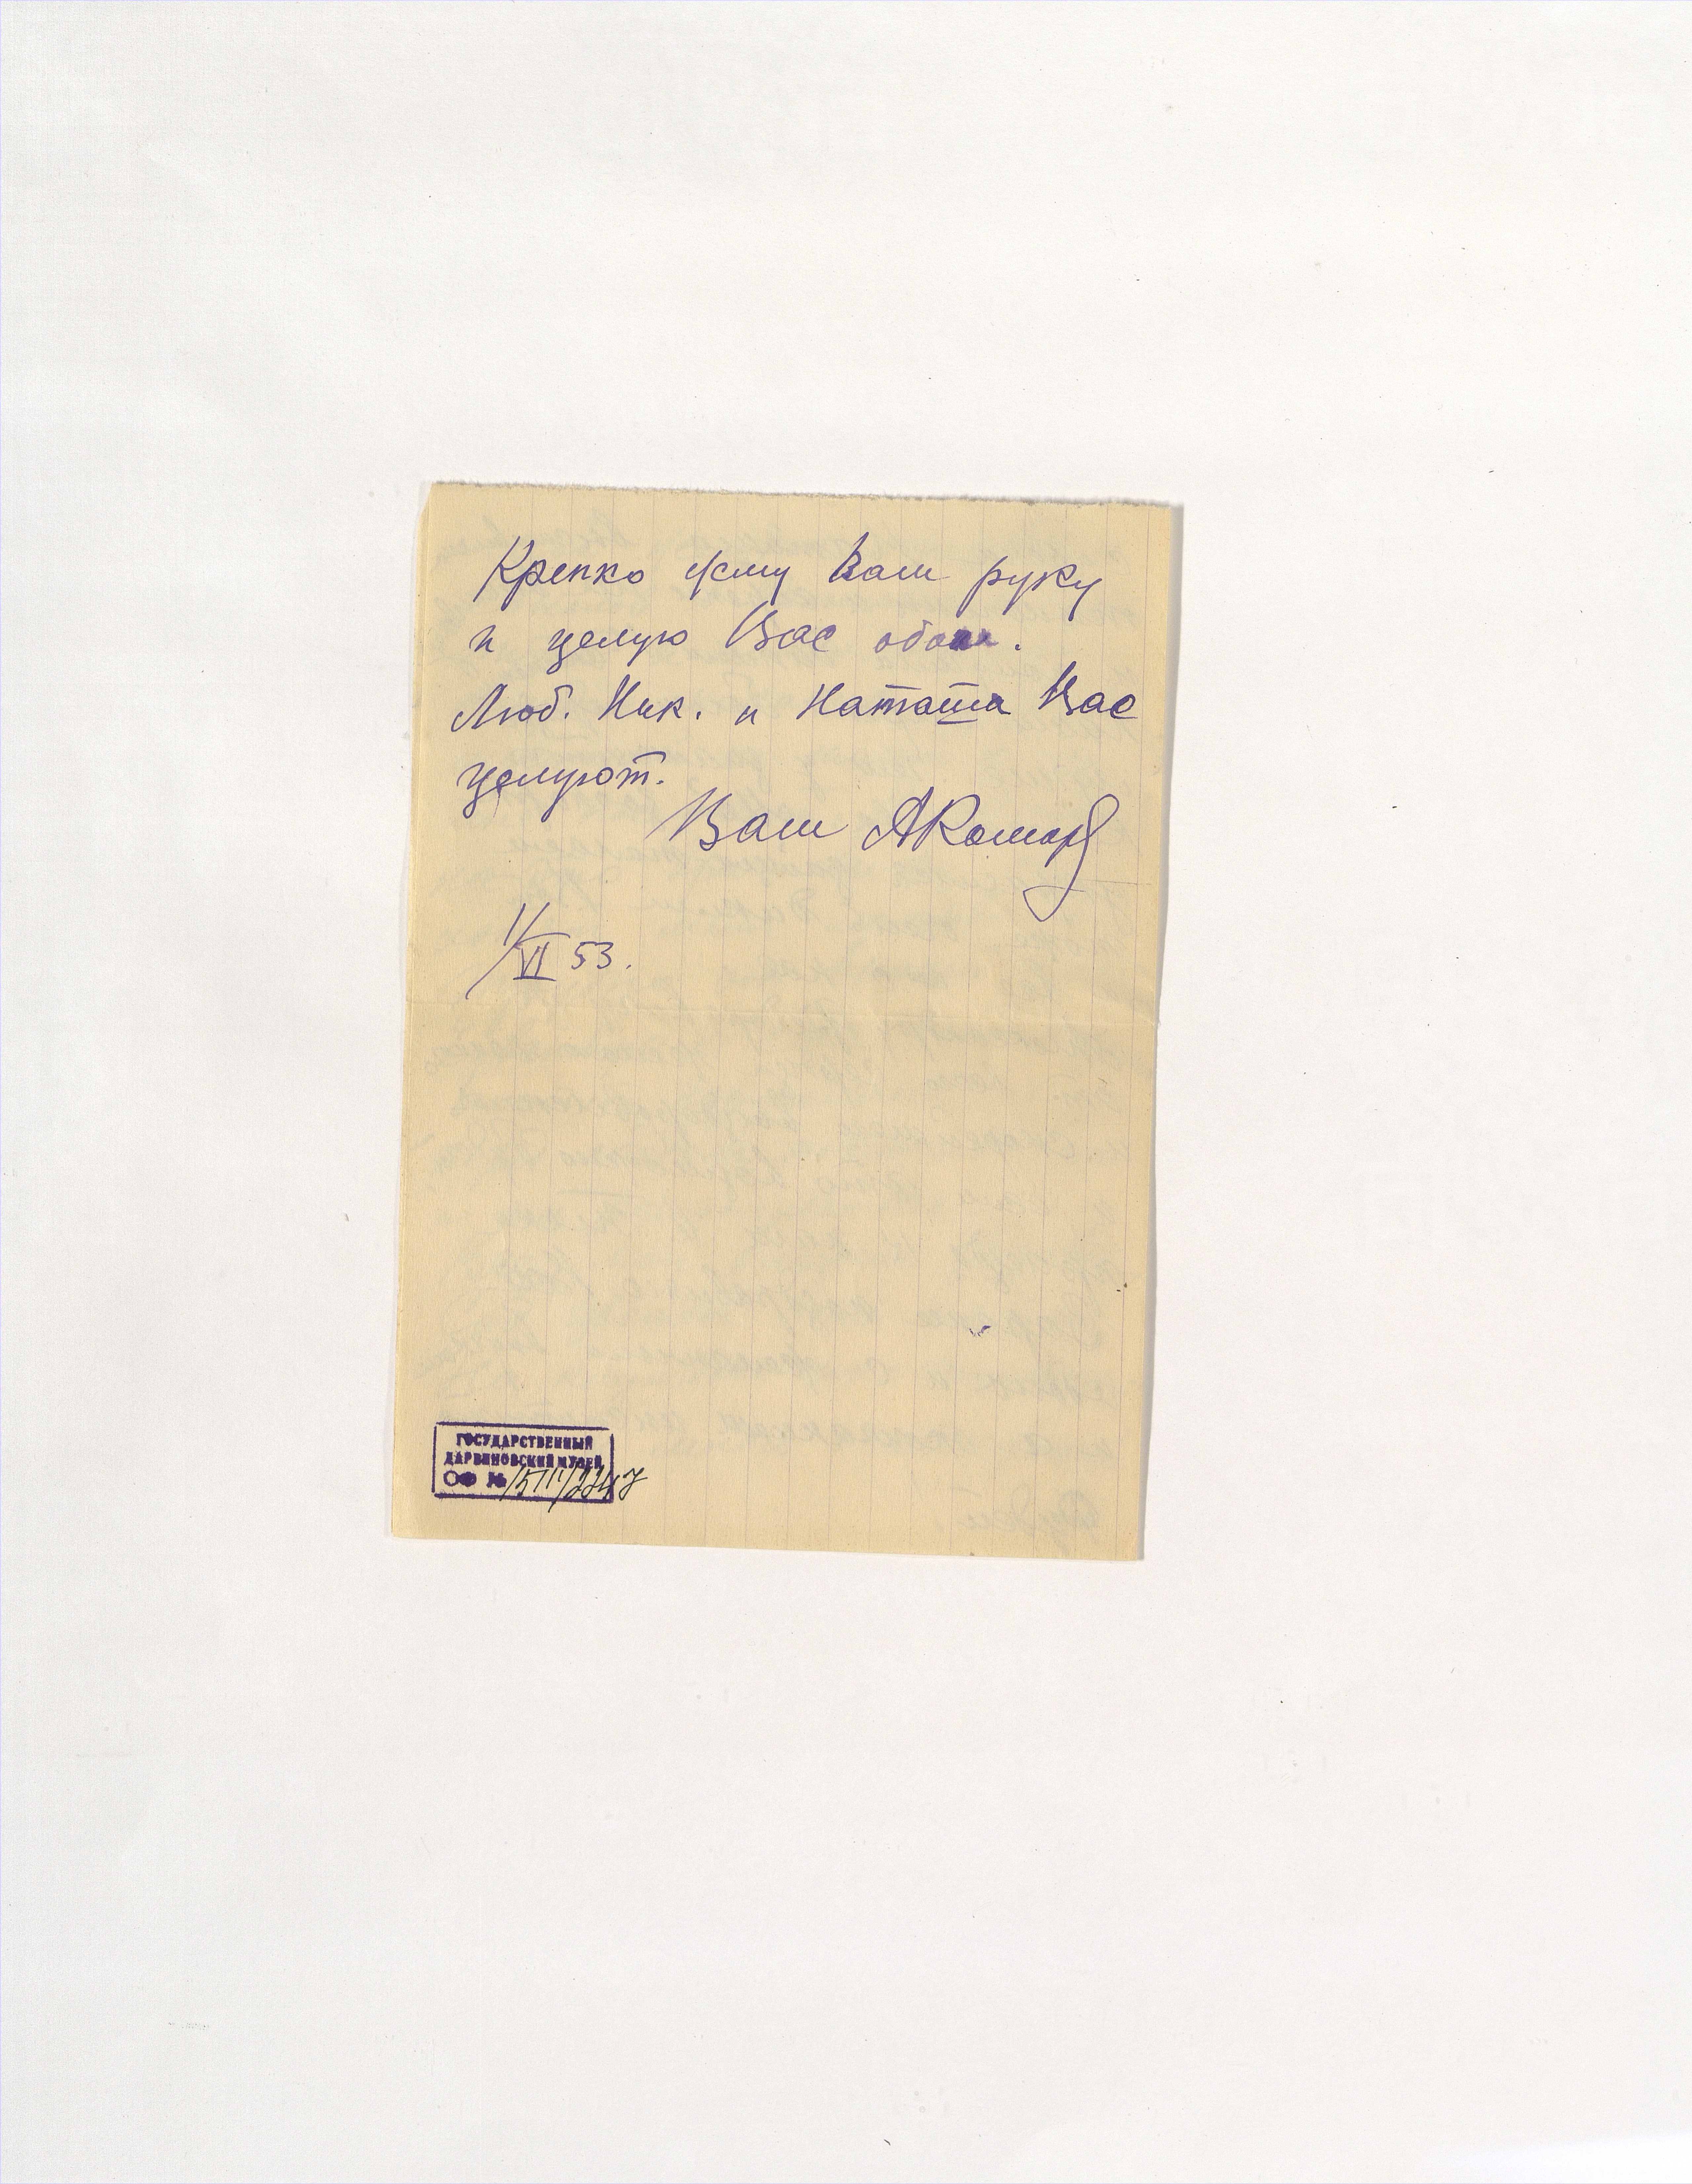 Крепко жму Вам руку
и целую Вас обоих.
Люб. Ник. и Наташа Вас
целуют.
Ваш АКомаров
1/VI 53.
ГОСУДАРСТВЕННЫЙ
ДАРВИНОВСКИЙ МУЗЕЙ
ОФ №